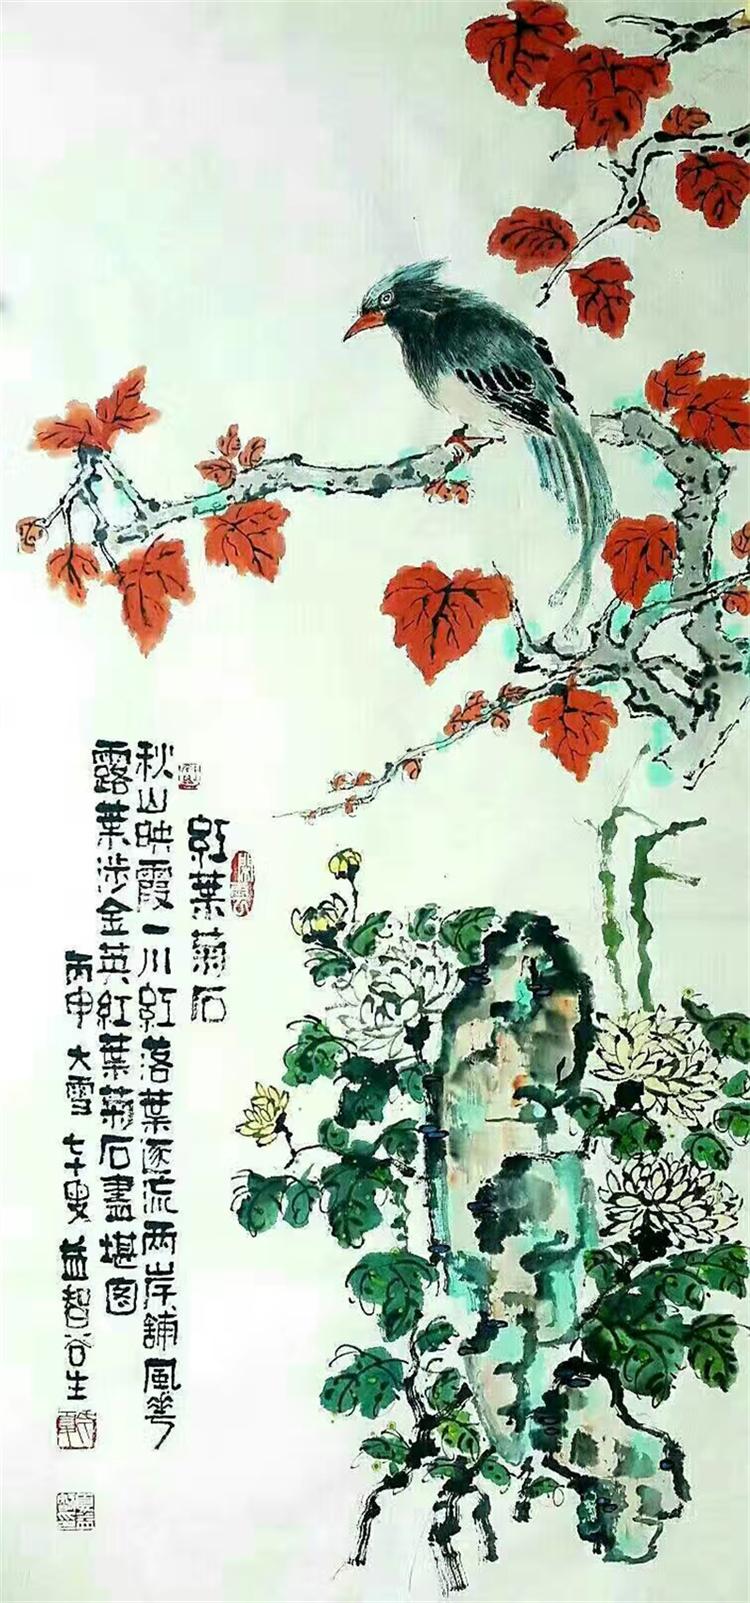 紅葉菊石
秋山映霞一川紅落葉逐流兩岸鋪風華
露葉涉金英紅葉菊石盡堪圖
丙申大雪七十叟益智谷生